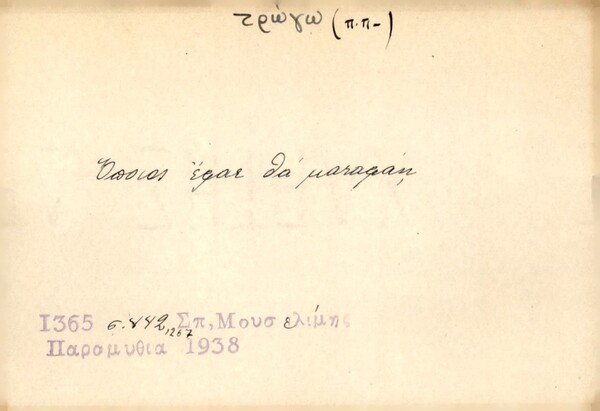 τρώγω (π.π-)
Όποιος έφαε θά ματαφάη
1365 σ. 442, 1267 Σπ, Μουσελίμης
Παραμυθια 1938